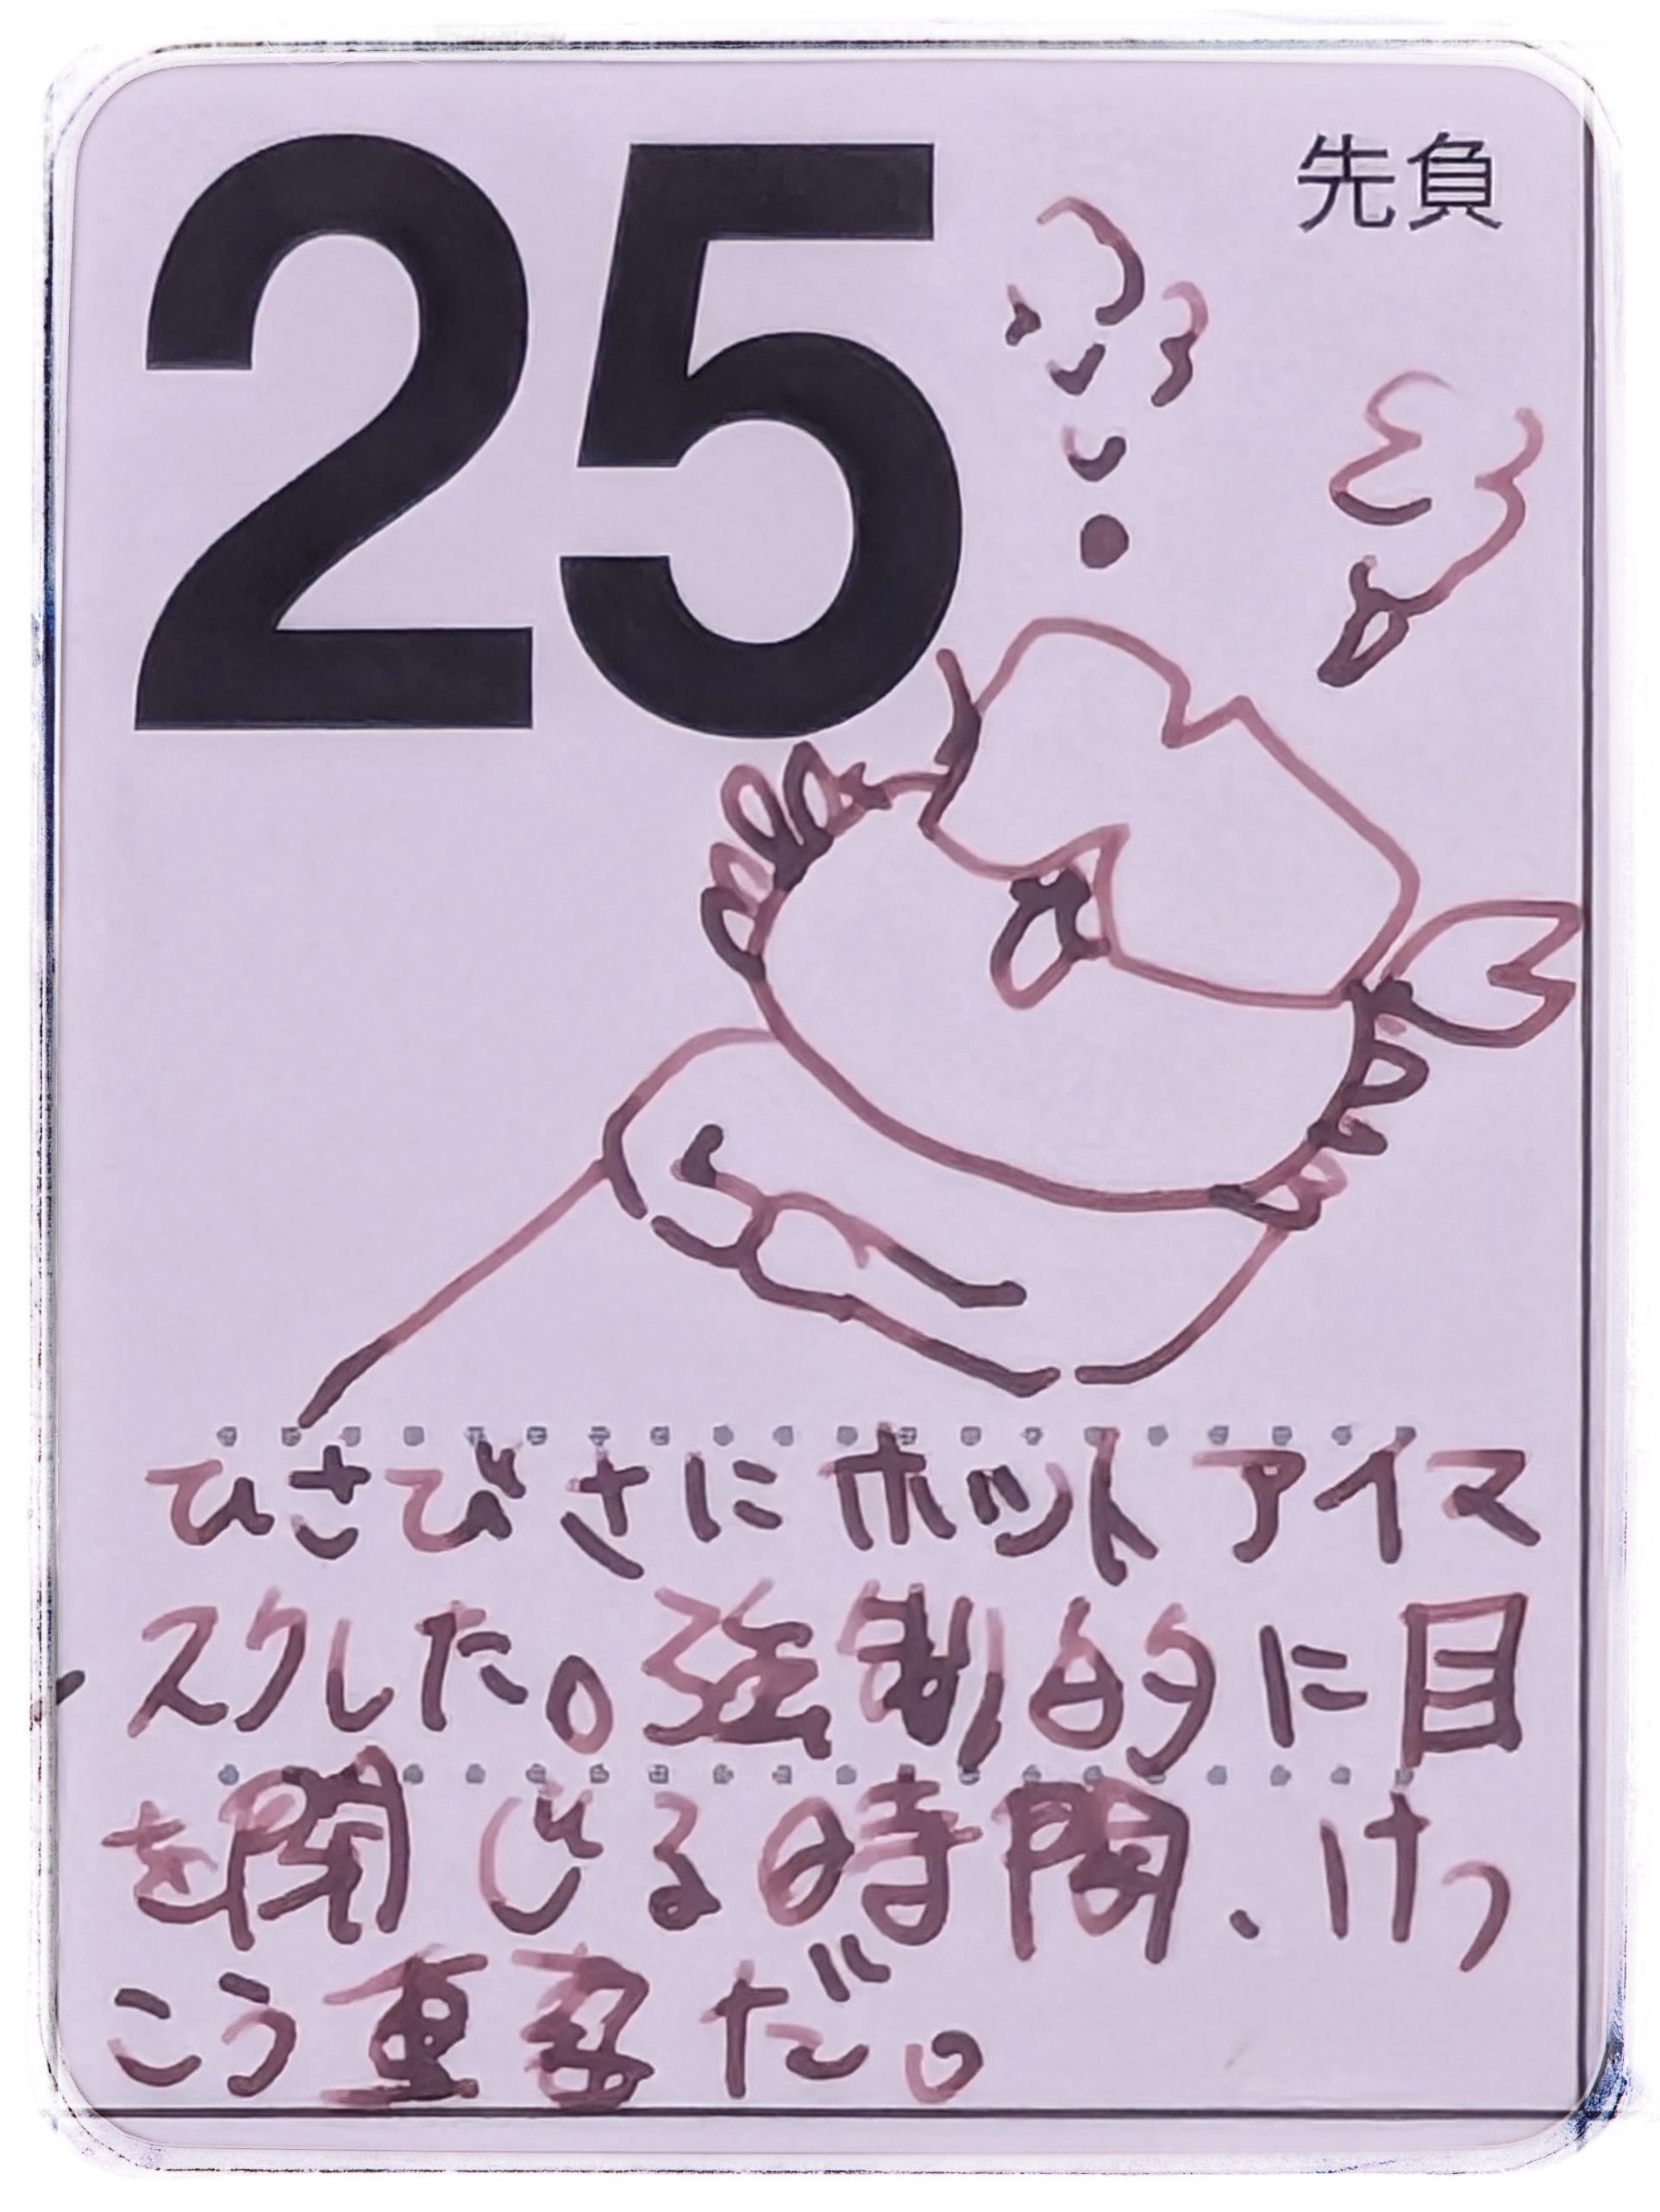 25
先負
ふぅ
ひさびさにホットアイマ
スクした。強制的に目
を閉じる時間、けっ
こう重要だ。